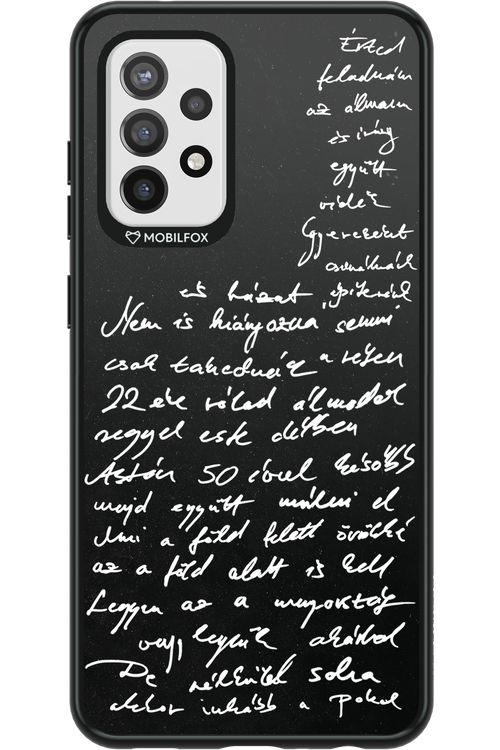 MOBILFOX
Érted
feladnám
az álmam
és így
együtt
Gyerekeket
csinálnánk
és házat építenénk
Nem is hiányozna semmi
csak takednák a réten
22 éve rólad álmodok
reggel este délben
Aztán 50 évvel később
majd együtt múlni el
Ami a föld felett örökké
az a föld alatt is kell
Legyen az a mennyország
vagy legyünk akárhol
De nélküled soha
akkor inkább a pokol